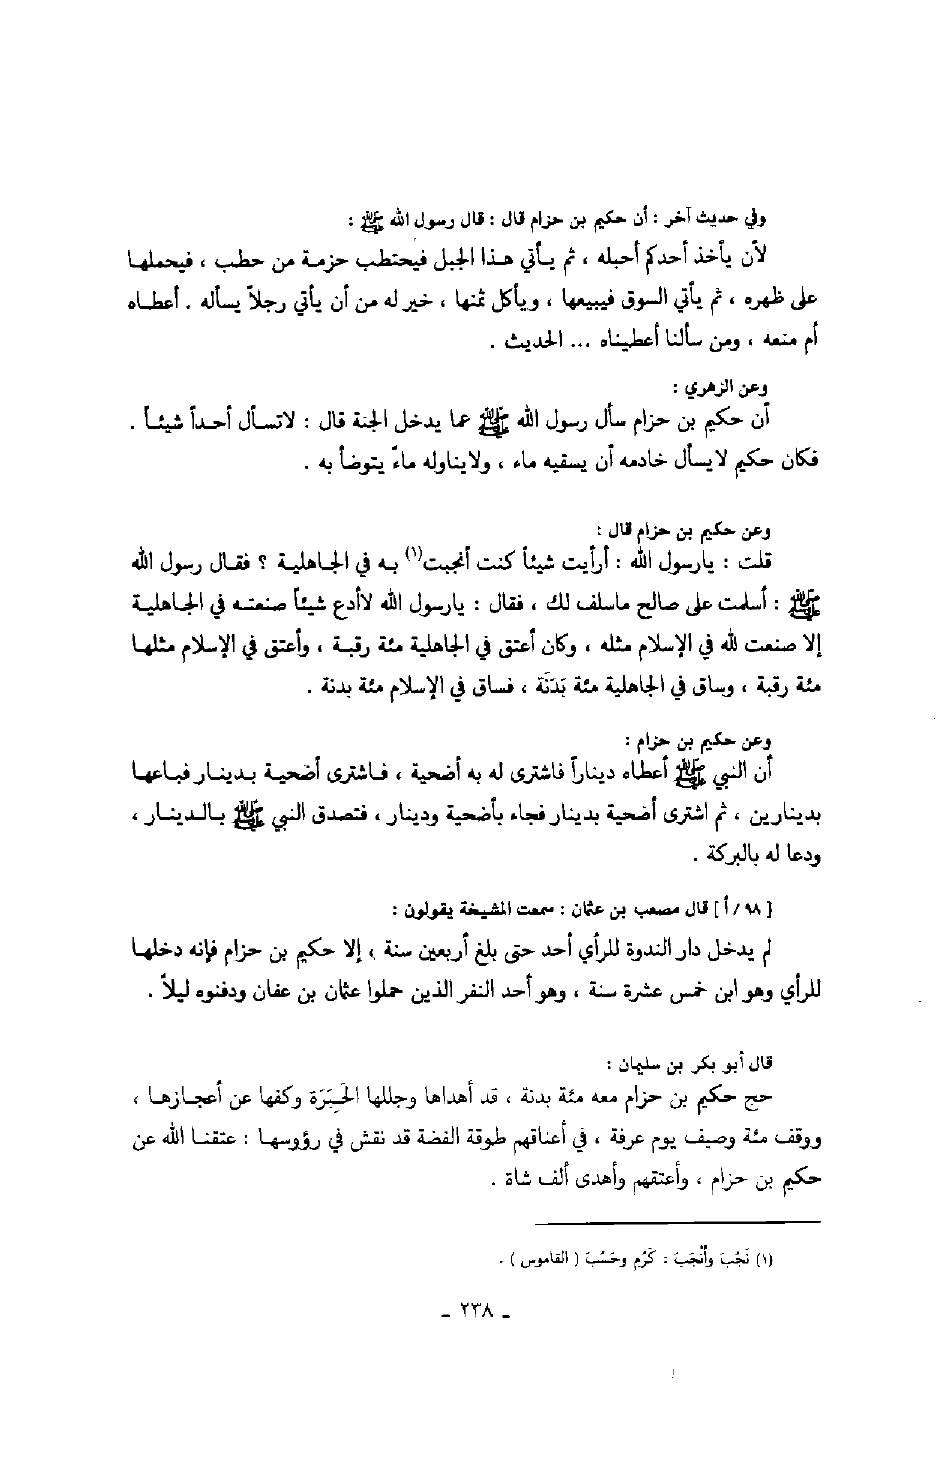 وفي حديث آخر : أن حكيم بن حزام قال : قال رسول الله ﷺ :
لأن يأخذ أحدكم أحبله ، ثم يأتي هذا الجبل فيحتطب حزمة من حطب ، فيحملها
على ظهره ، ثم يأتي السوق فيبيعها ، ويأكل ثمنها ، خير له من أن يأتي رجلاً يسأله . أعطاه
أم منعه ، ومن سألنا أعطيناه ... الحديث .
وعن الزهري :
أن حكيم بن حزام سأل رسول الله ﷺ عما يدخل الجنة قال : لاتسأل أحداً شيئاً .
فكان حكيم لايسأل خادمه أن يسقيه ماء ، ولايناوله ماءً يتوضأ به .
وعن حكيم بن حزام قال :
قلت : يارسول الله : أرأيت شيئاً كنت أنجبت(١) به في الجاهلية ؟ فقال رسول الله
ﷺ : أسلمت على صالح ماسلف لك ، فقال : يارسول الله لاأدع شيئاً صنعته في الجاهلية
إلا صنعت لله في الإسلام مثله ، وكان أعتق في الجاهلية مئة رقبة ، وأعتق في الإسلام مثلها
مئة رقبة ، وساق في الجاهلية مئة بَدَنَة ، فساق في الإسلام مئة بدنة .
وعن حكيم بن حزام :
أن النبي ﷺ أعطاه ديناراً فاشترى له به أضحية ، فاشترى أضحية بدينار فباعها
بدينارين ، ثم اشترى أضحية بدينار فجاء بأضحية ودينار ، فتصدق النبي ﷺ بالدينار ،
ودعا له بالبركة .
[ ٩٨ / أ ] قال مصعب بن عثمان : سمعت المشيخة يقولون :
لم يدخل دار الندوة للرأي أحد حتى بلغ أربعين سنة ، إلا حكيم بن حزام فإنه دخلها
للرأي وهو ابن خمس عشرة سنة ، وهو أحد النفر الذين حملوا عثمان بن عفان ودفنوه ليلاً .
قال أبو بكر بن سليمان :
حج حكيم بن حزام معه مئة بدنة ، قد أهداها وجللها الحَبِرَة وكفها عن أعجازها ،
ووقف مئة وصيف يوم عرفة ، في أعناقهم طوقة الفضة قد نقش في رؤوسها : عتقنا الله عن
حكيم بن حزام ، وأعتقهم وأهدى ألف شاة .
(١) نَجُبَ وأنْجَبَ : كَرُم وحَسُبَ ( القاموس ) .
ـ ٢٣٨ ـ